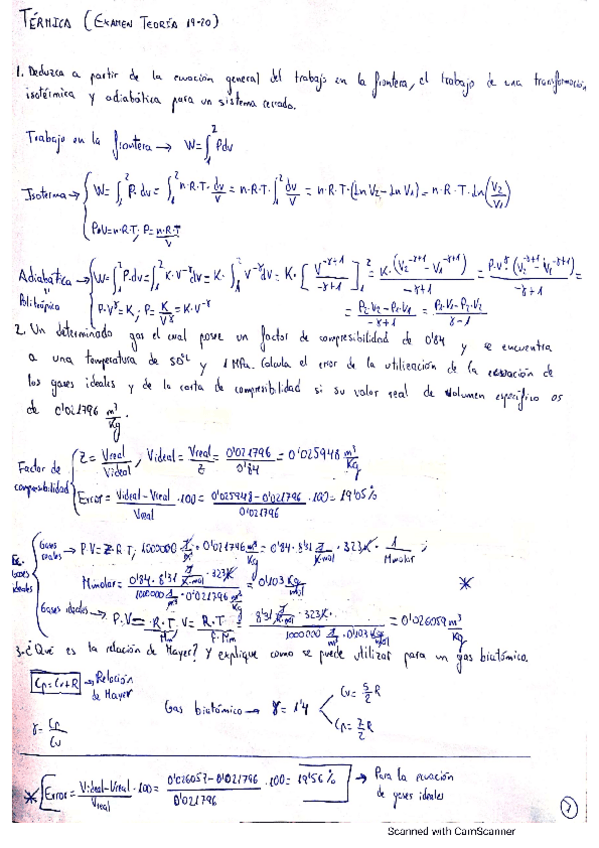 TÉRMICA (EXAMEN TEORÍA 19-20)
1. Deduzca a partir de la ecuación general del trabajo en la frontera, el trabajo de una transformación
isotérmica y adiabática para un sistema cerrado.
Trabajo en la frontera → W=∫₁² Pdv
Isoterma → W=∫₁² P·dv = ∫₁² n·R·T·dv/V = n·R·T·∫₁² dv/V = n·R·T·(Ln V2 - Ln V1) = n·R·T·Ln(V2/V1)
P·V=n·R·T; P=n·R·T/V
Adiabática → W=∫₁² P·dv = ∫₁² K·V^-γ dv = K·∫₁² V^-γ dv = K·[V^-γ+1/-γ+1]₁² = K·(V2^-γ+1 - V1^-γ+1)/-γ+1 = P·V^γ·(V2^-γ+1 - V1^-γ+1)/-γ+1 =
Politrópico P·V^γ=K; P=K/V^γ=K·V^-γ = P2·V2-P1·V1/-γ+1 = P1·V1-P2·V2/γ-1
2. Un determinado gas el cual posee un factor de compresibilidad de 0'84 y se encuentra
a una temperatura de 50ºC y 1 MPa. Calcula el error de la utilización de la ecuación de
los gases ideales y de la carta de compresibilidad si su valor real de volumen específico es
de 0'021796 m³/Kg.
Factor de compresibilidad Z = Vreal/Videal; Videal = Vreal/Z = 0'021796/0'84 = 0'025948 m³/Kg
Error = Videal-Vreal/Vreal ·100 = 0'025948-0'021796/0'021796 ·100 = 19'05%
Ec. Gases ideales
Gases reales → P·V=Z·R·T; 1000000 · 0'021796 m³/Kg = 0'84·8'31 J/K·mol · 323K · 1/Mmolar;
Mmolar = 0'84·8'31 J/K·mol · 323K / 1000000 · 0'021796 m³/Kg = 0'103 Kg/mol *
Gases ideales → P·V = R·T/Mm; V = R·T/P·Mm = 8'31 J/K·mol · 323K / 1000000 · 0'103 Kg/mol = 0'026059 m³/Kg
3. ¿Qué es la relación de Mayer? Y explique como se puede utilizar para un gas biatómico.
Cp=Cv+R → Relación de Mayer
Gas biatómico → γ = 1'4 Cv = 5/2 R
γ = Cp/Cv Cp = 7/2 R
* Error = Videal-Vreal/Vreal ·100 = 0'026057-0'021796/0'021796 ·100 = 19'56% → Para la ecuación
de gases ideales
Scanned with CamScanner